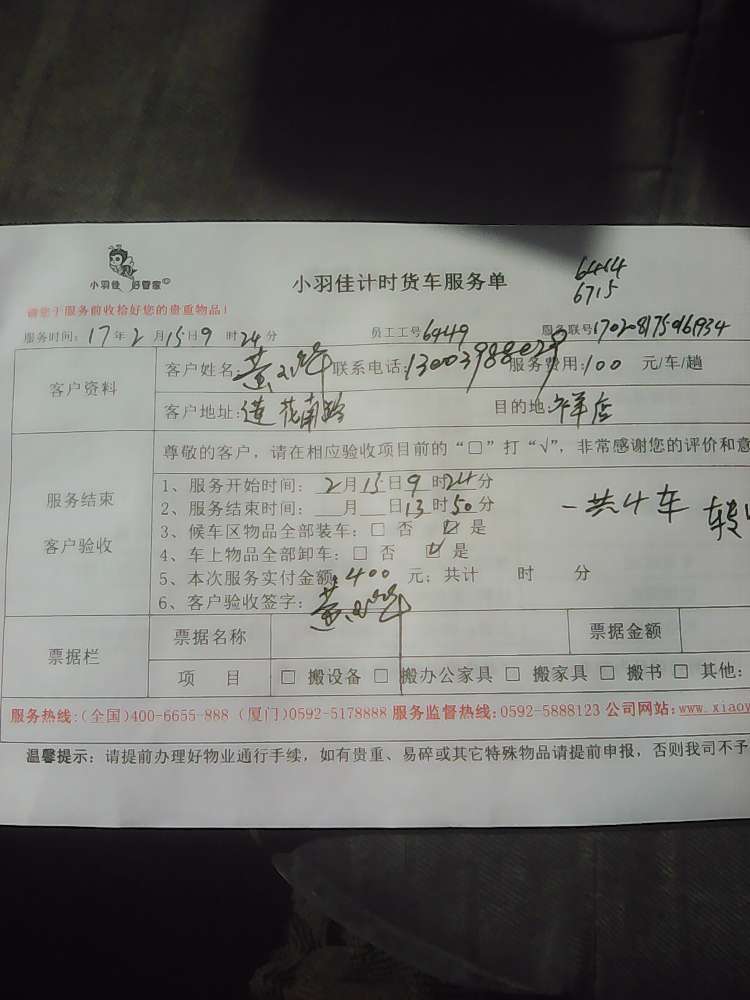 小羽佳 好管家
小羽佳计时货车服务单
6464
6715
请您于服务前收拾好您的贵重物品!
服务时间: 17年2月15日9时24分 员工工号6449 服务联号170208175016934
客户资料
客户姓名: 黄 联系电话:13003988029 服务费用:100 元/车/趟
客户地址:莲花南路 目的地:洋唐
尊敬的客户, 请在相应验收项目前的“□”打“√”, 非常感谢您的评价和意
服务结束
客户验收
1、服务开始时间: 2月15日9时24分
2、服务结束时间: 月 日13时50分
一共4车
3、候车区物品全部装车: □ 否 ☑ 是
4、车上物品全部卸车: □ 否 ☑ 是
5、本次服务实付金额: 400 元; 共计 时 分
6、客户验收签字: 黄
票据栏
票据名称 票据金额
项 目 □ 搬设备 □ 搬办公家具 □ 搬家具 □ 搬书 □ 其他:
服务热线:(全国)400-6655-888 (厦门)0592-5178888 服务监督热线:0592-5888123 公司网站:www.xiaoy
温馨提示: 请提前办理好物业通行手续, 如有贵重、易碎或其它特殊物品请提前申报, 否则我司不予